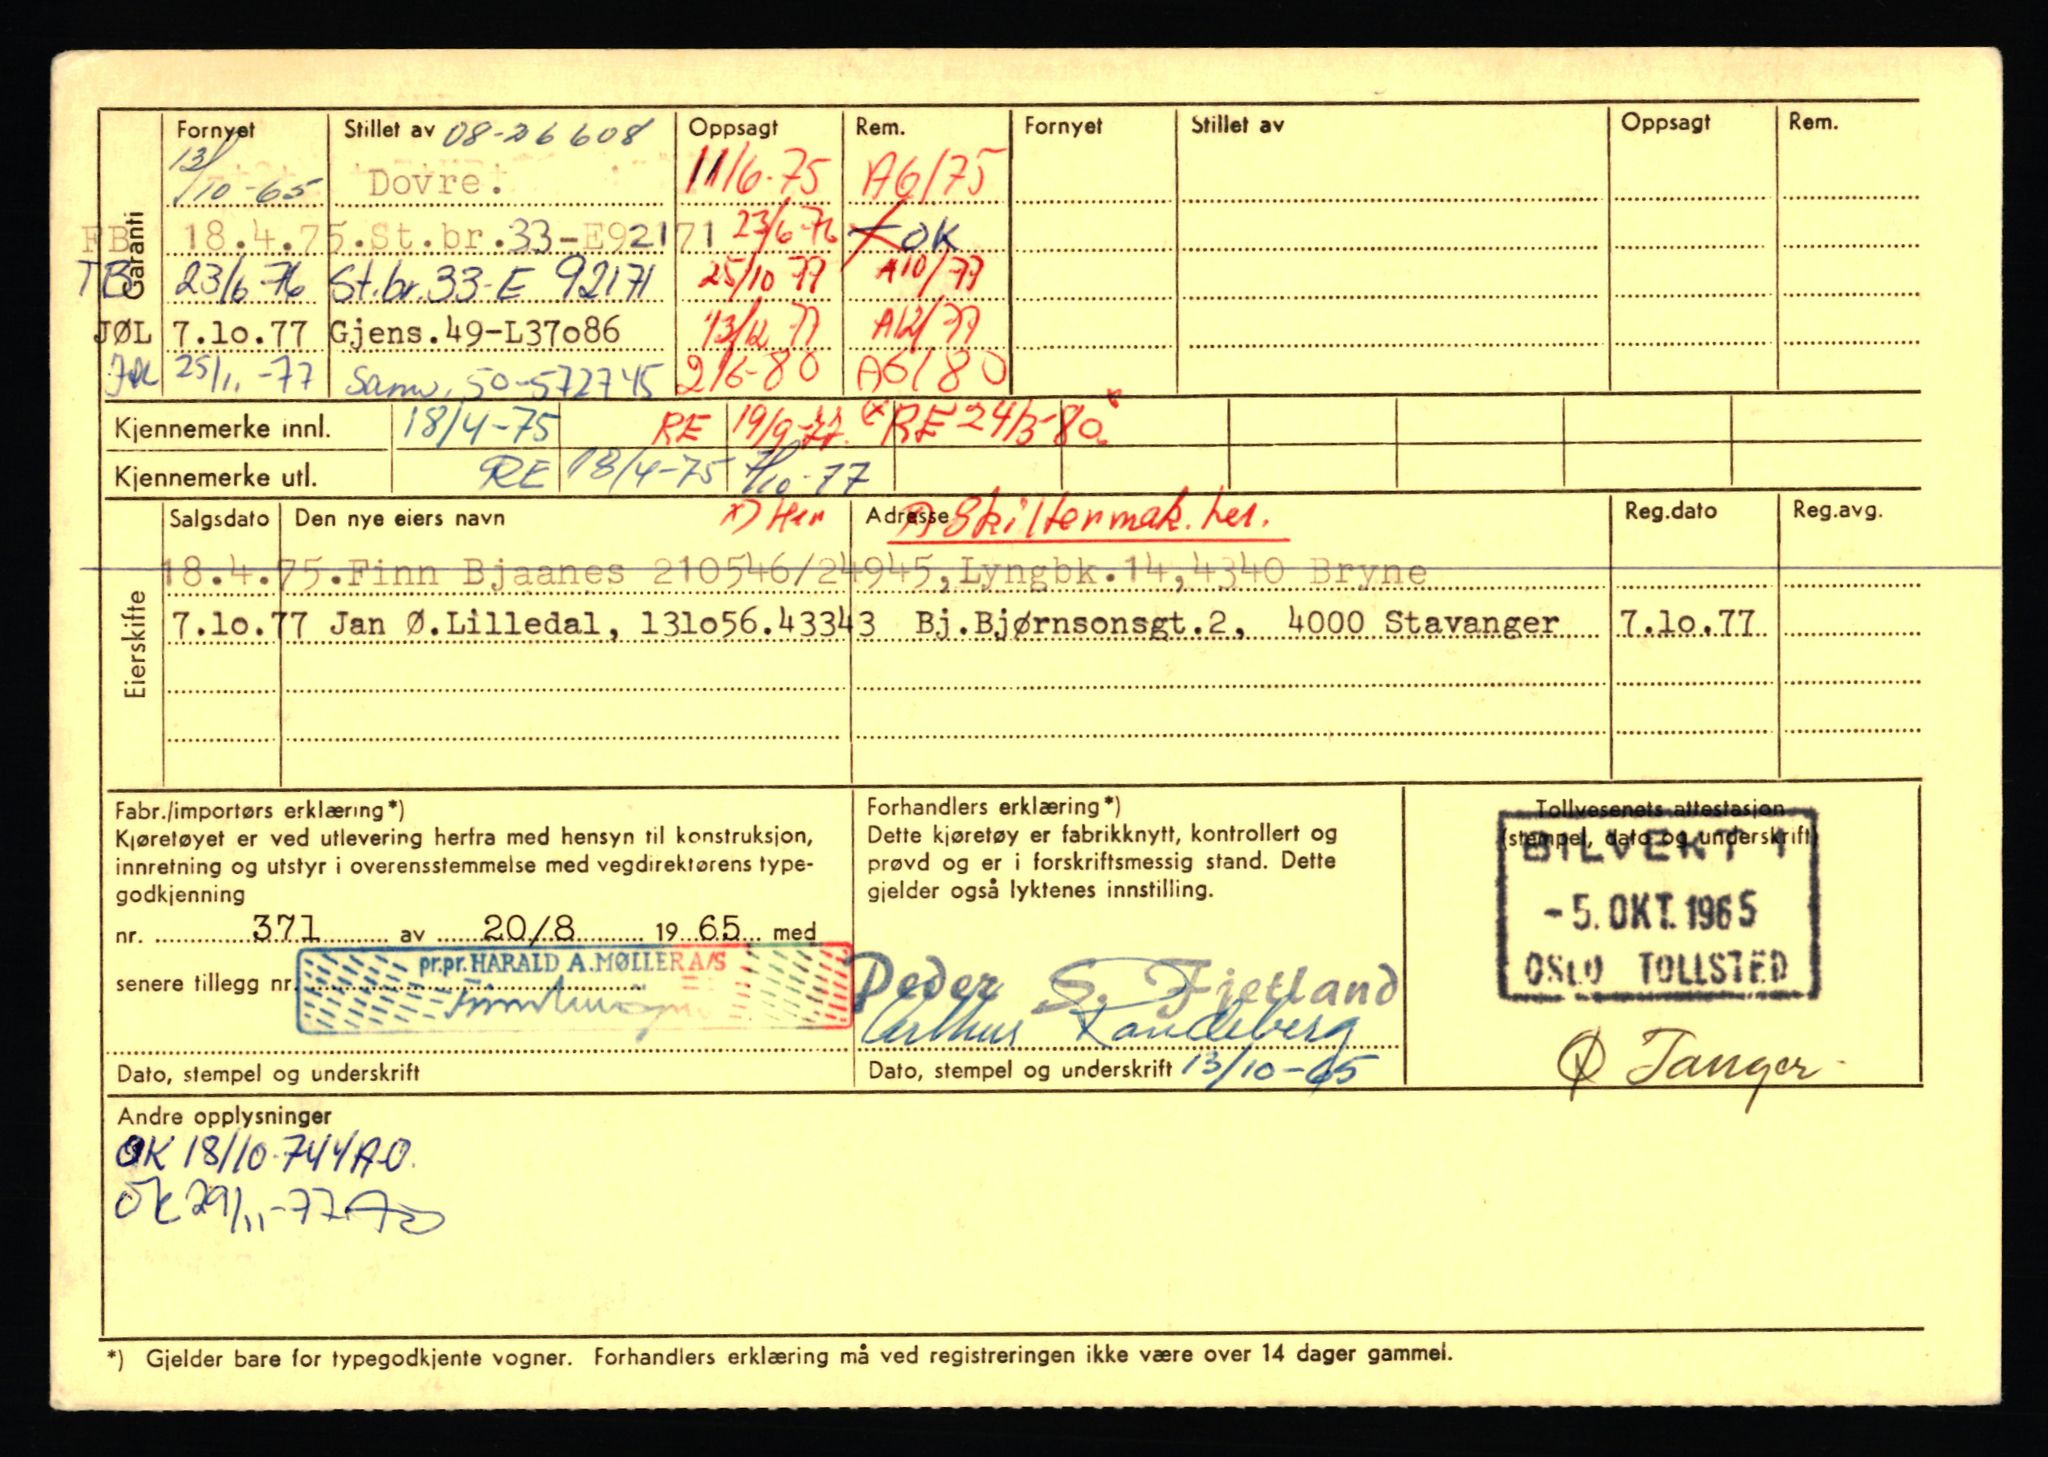 Fornyet Stillet av 08-26608 Oppsagt Rem. Fornyet Stillet av Oppsagt Rem.
13/10-65 Dovre. 11/6-75 A6/75
Garanti
FB 18.4.75. St.br.33-E92171 23/6-76 OK
TB 23/6-76 St.br.33-E 92171 25/10 77 A10/77
JØL 7.1o.77 Gjens.49-L37o86 13/12 77 A12/77
JØL 25/11-77 Samv. 50-572745 2/6-80 A6/80
Kjennemerke innl. 18/4-75 RE 19/9-77. (x RE 24/3-80 x
Kjennemerke utl. RE 18/4-75 7/10-77
Eierskifte
Salgsdato Den nye eiers navn x) Her Adresse x) Skilter mak. her. Reg.dato Reg.avg.
18.4.75. Finn Bjaanes 210546/24945, Lyngbk.14, 4340 Bryne
7.1o.77 Jan Ø.Lilledal, 131o56.43343 Bj.Bjørnsonsgt.2, 4000 Stavanger 7.1o.77
Fabr./importørs erklæring*)
Kjøretøyet er ved utlevering herfra med hensyn til konstruksjon,
innretning og utstyr i overensstemmelse med vegdirektørens type-
godkjenning
nr. 371 av 20/8 1965 med
senere tillegg nr.
pr.pr. HARALD A. MØLLER A/S
Dato, stempel og underskrift
Forhandlers erklæring*)
Dette kjøretøy er fabrikknytt, kontrollert og
prøvd og er i forskriftsmessig stand. Dette
gjelder også lyktenes innstilling.
Peder S. Fjetland
Arthur Randeberg
Dato, stempel og underskrift 13/10-65
Tollvesenets attestasjon
(stempel, dato og underskrift)
BILVEKT 1
-5. OKT. 1965
OSLO TOLLSTED
Ø Tanger
Andre opplysninger
OK 18/10-74 YAO.
OK 29/11-77 AO
*) Gjelder bare for typegodkjente vogner. Forhandlers erklæring må ved registreringen ikke være over 14 dager gammel.